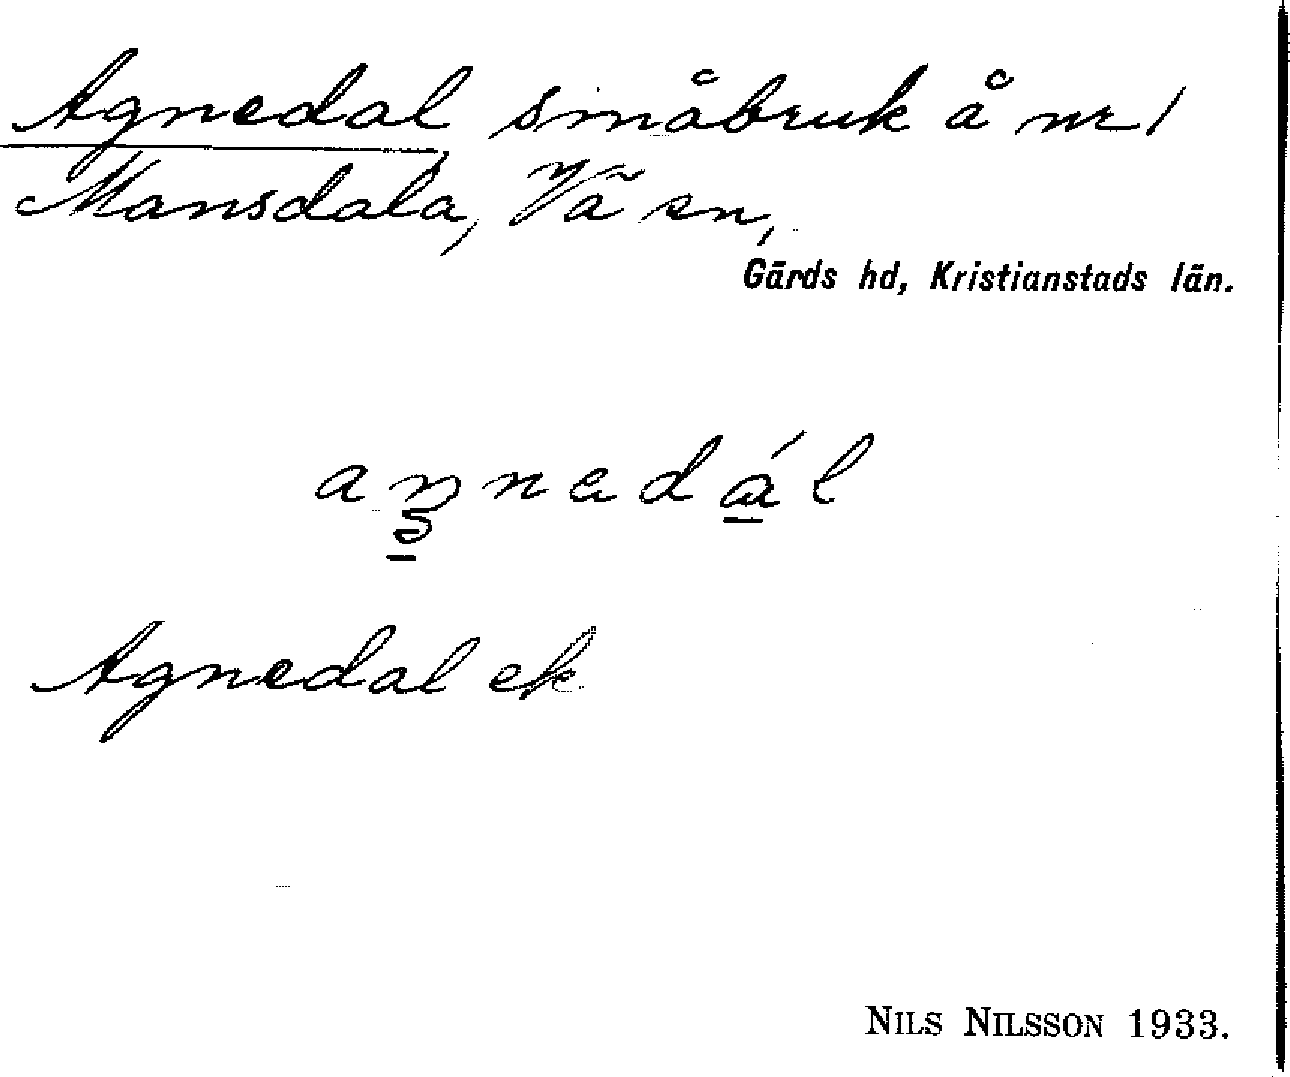 Agnedal småbruk å nr 1
Mansdala, Vä sn,
Gärds hd, Kristianstads län.
aŋnedál
Agnedal ek.
NILS NILSSON 1933.